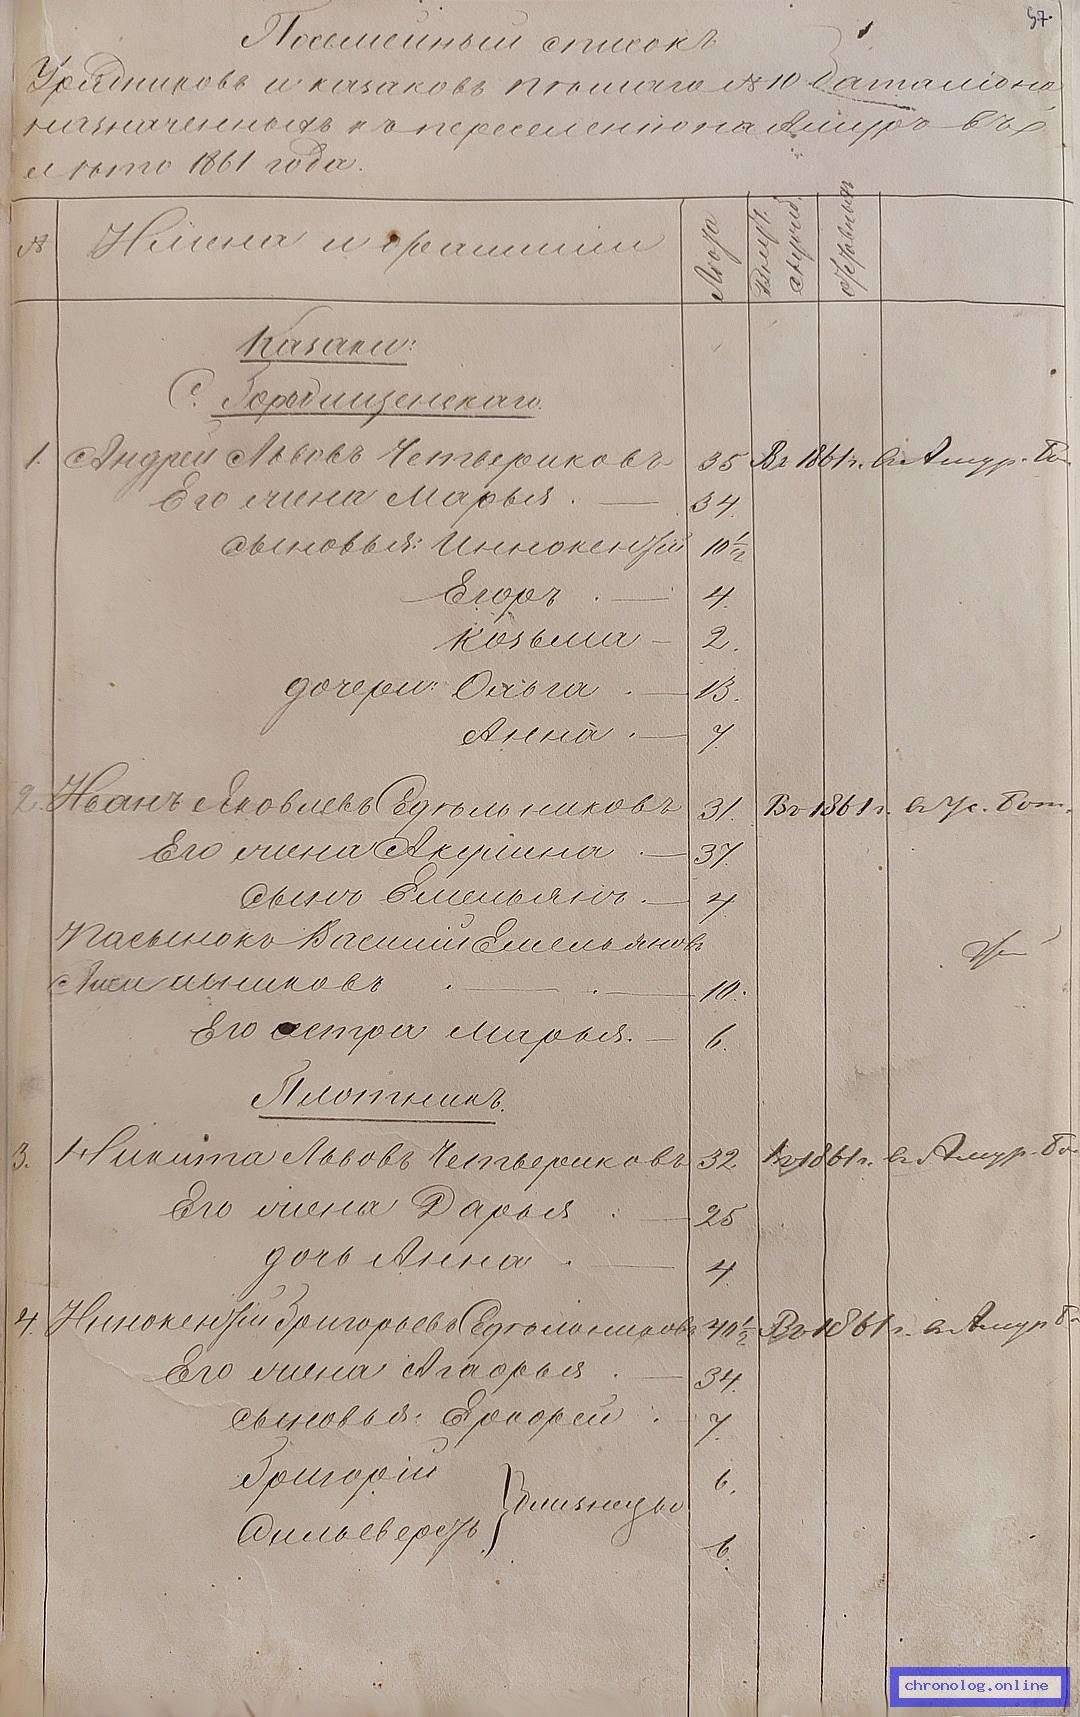 57.
Посемейный списокъ
Урядниковъ и казаковъ пѣшаго № 10 баталіона
назначенныхъ къ переселенію на Амуръ въ
лѣто 1861 года.
№
Имена и фамиліи
Лѣта
Казаки:
С. Городищенскаго.
1. Андрей Львовъ Четвериковъ 35 Въ 1861 г. въ Амур. ба
Его жена Марья . — 34.
сыновья: Иннокентій 10 1/2
Егоръ . — 4.
Козьма — 2.
дочери: Ольга . — 13.
Анна . — 7.
2. Иванъ Яковлевъ Сѣдельниковъ 31. Въ 1861 г. въ Ус. бат.
Его жена Акулина . — 37.
сынъ Емельянъ . — 4.
Пасынокъ Василій Емельяновъ
. — . — 10.
Его сестра Марья. — 6.
Плотникъ.
3. Никита Львовъ Четвериковъ 32 Въ 1861 г. въ Амур. ба
Его жена Дарья . — 25
дочь Анна . — 4
4. Иннокентій Григорьевъ Сѣдельниковъ 40 1/2 Въ 1861 г. въ Амур б
Его жена Агафья . — 34.
сыновья: 7.
Григорій 6.
} близнецы
6.
chronolog.online